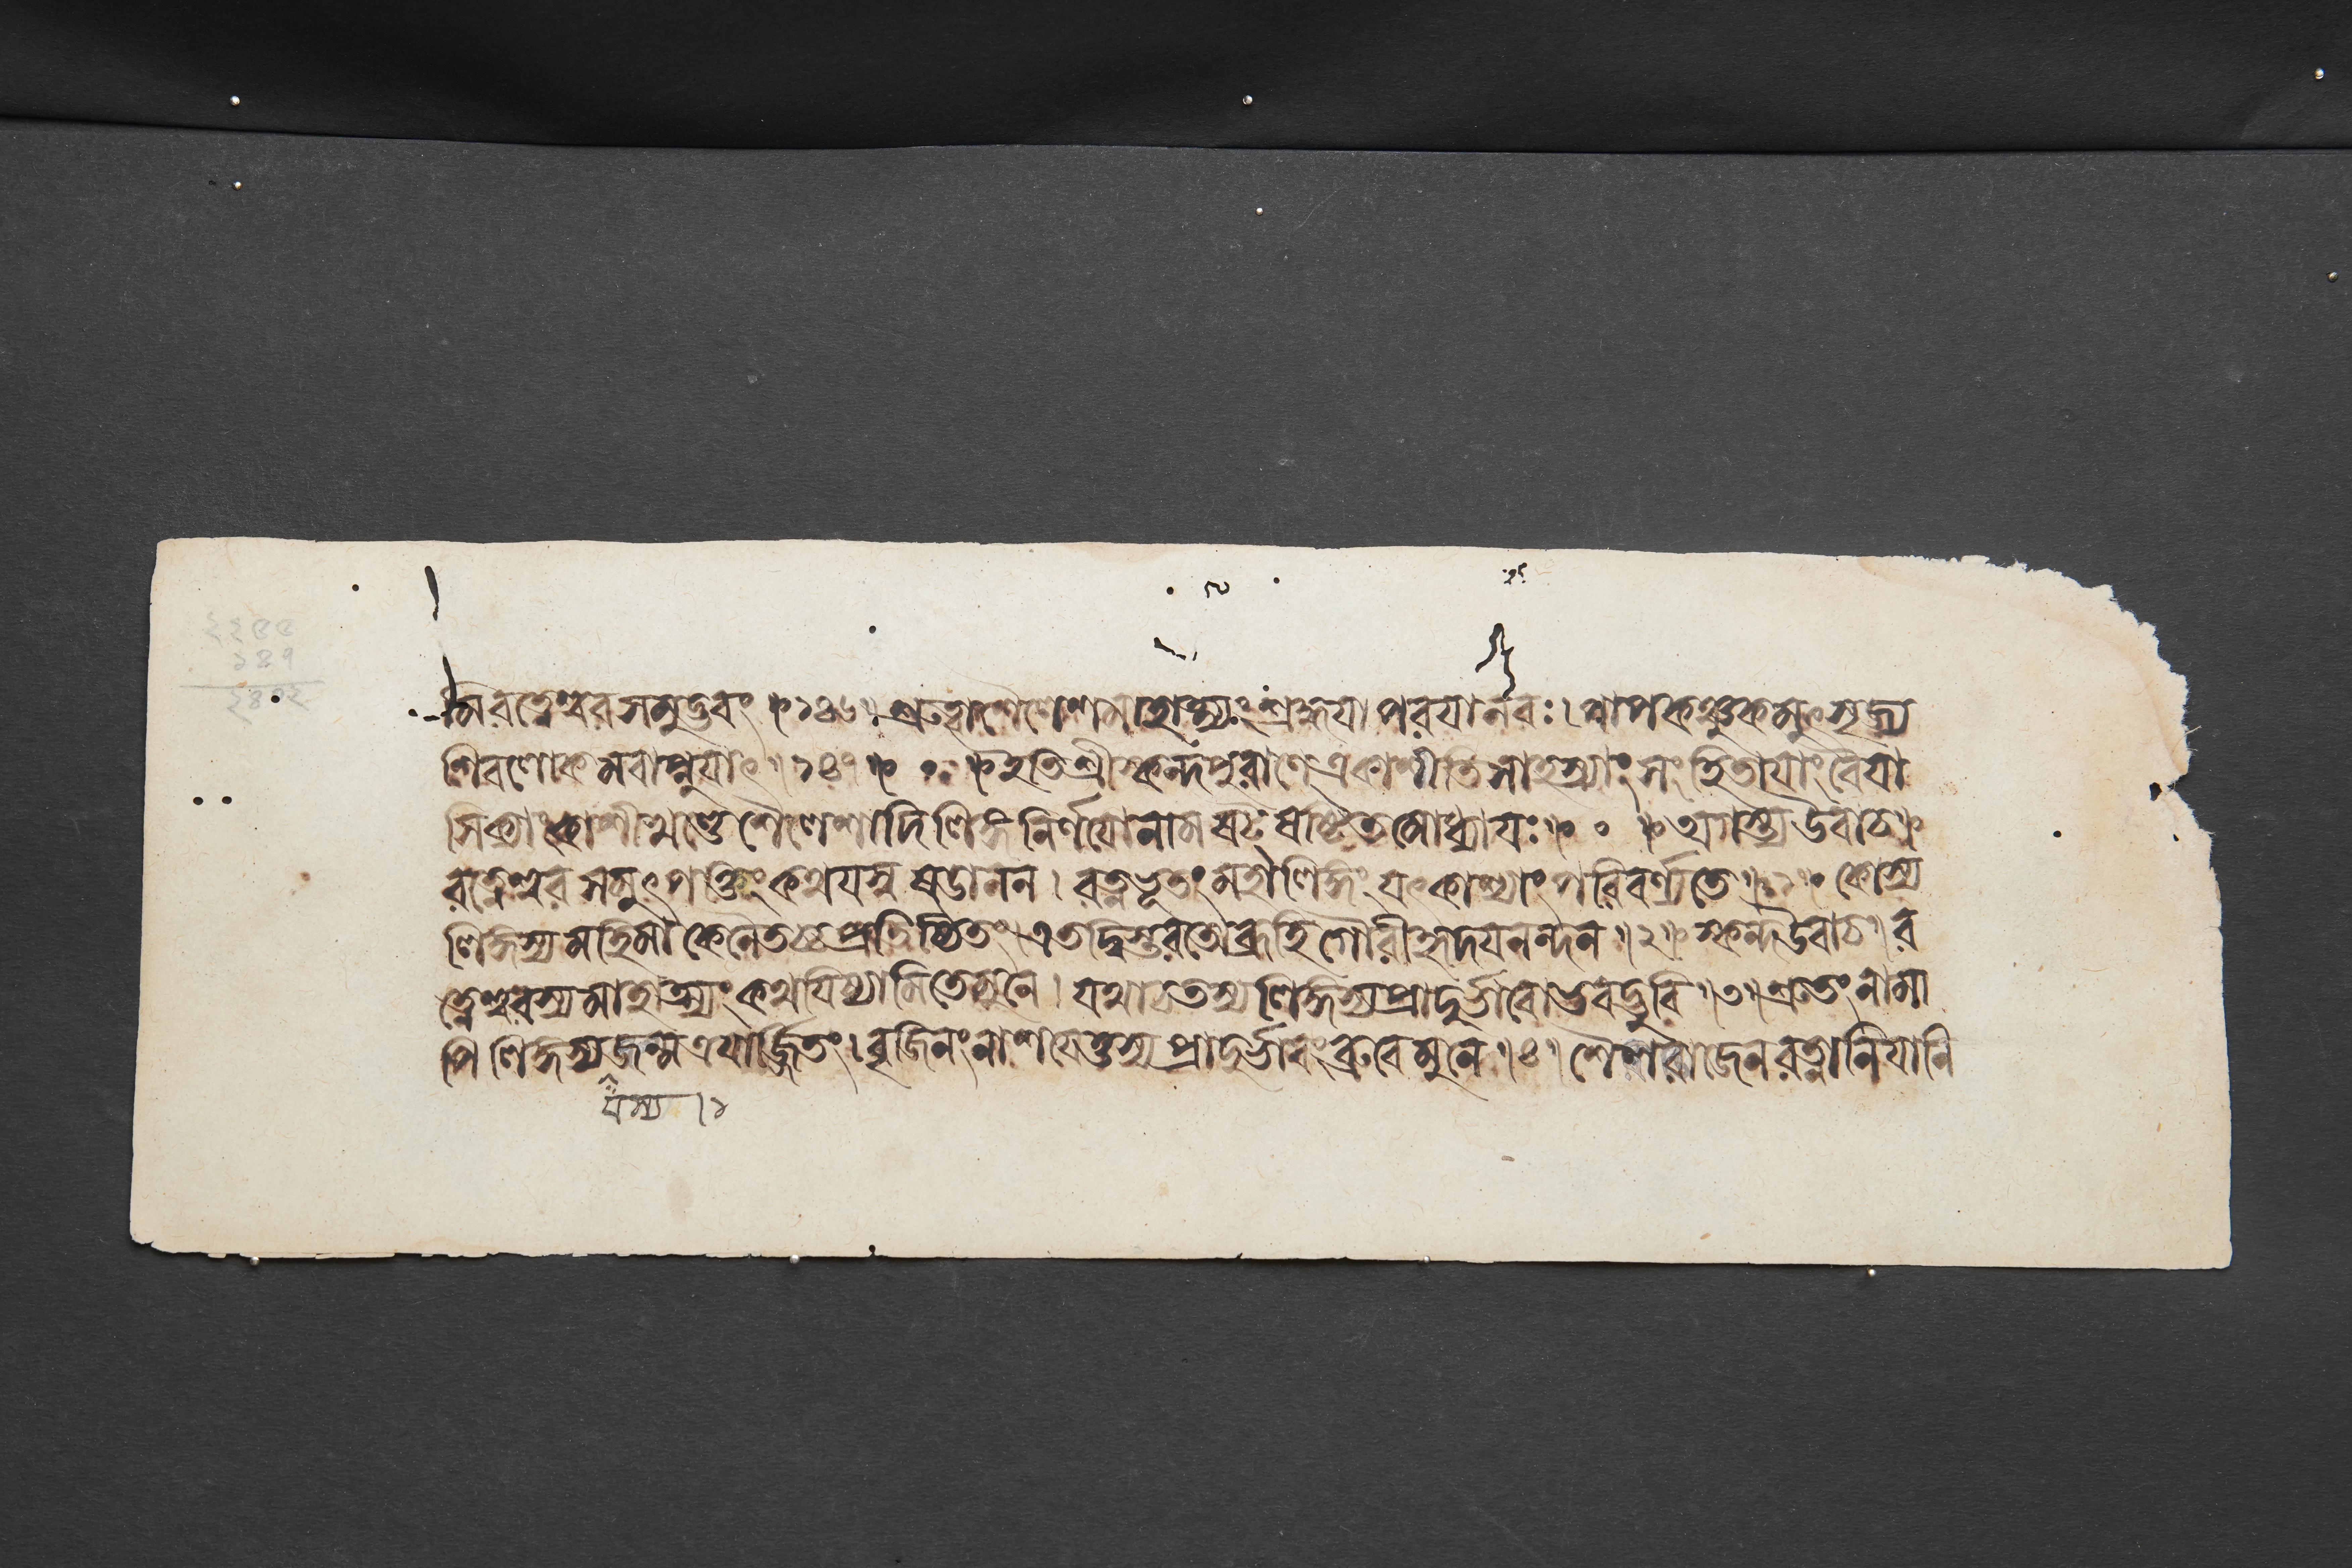 २२५५
१४७
२४०२
মিরত্নেশ্বরসমুদ্ভবং ॥১৪৬॥ শ্রুত্বাশৈলেশমাহাত্ম্যং শ্রদ্ধযাপরযানরঃ। পাপকঞ্চুকমুৎসৃজ্য
শিবলোকমবাপ্নুযাৎ ॥১৪৭॥ ০ ॥ইতিশ্রীস্কন্দপুরাণেএকাশীতিসাহস্র্যাংসংহিতাযাংবৈযা
সিক্যাংকাশীখণ্ডেশৈলেশাদিলিঙ্গনির্ণযোনামষট্ষষ্টিতমোধ্যাযঃ॥ ০ ॥অগস্ত্যউবাচ॥
রত্নেশ্বরসমুৎপত্তিংকথযস্বষডানন। রত্নভূতংমহালিঙ্গং যৎকাশ্যাংপরিবর্ণ্যতে॥১॥ কোস্য
লিঙ্গস্যমহিমাকেনৈতচ্চপ্রতিষ্ঠিতং। এতদ্বিস্তরতোব্রূহিগৌরীহৃদযনন্দন॥২॥ স্কন্দউবাচ॥র
ত্নেশ্বরস্যমাহাত্ম্যংকথযিষ্যামিতেমুনে। যথাচতস্যলিঙ্গস্যপ্রাদুর্ভাবোভবদ্ভুবি॥৩॥শ্রুতংনামা
পিলিঙ্গস্যজন্মত্রযার্জ্জিতং। বৃজিনংনাশযেত্তস্যপ্রাদুর্ভাবংব্রুবেমুনে॥৪॥ শৈলরাজেনরত্নানিযানি
যস্য ।১